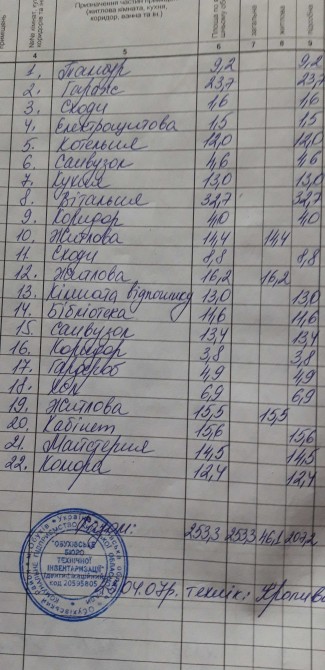 Призначення частин
(житлова кімната, кухня,
коридор, ванна та ін.)
4 5 6 7 8 9
1. Тамбур 9,2 9,2
2. Гараж 23,7 23,7
3. Сходи 1,6 1,6
4. Електрощитова 1,5 1,5
5. Котельня 12,0 12,0
6. Санвузол 4,6 4,6
7. Кухня 13,0 13,0
8. Вітальня 32,7 32,7
9. Коридор 4,0 4,0
10. Житлова 14,4 14,4
11. Сходи 8,8 8,8
12. Житлова 16,2 16,2
13. Кімната відпочинку 13,0 13,0
14. Бібліотека 14,6 14,6
15. Санвузол 13,4 13,4
16. Коридор 3,8 3,8
17. Гардероб 4,9 4,9
18. Хол 6,9 6,9
19. Житлова 15,5 15,5
20. Кабінет 15,6 15,6
21. Майстерня 14,5 14,5
22. Комора 12,4 12,4
Разом: 253,3 253,3 46,1 207,2
ОБУХІВСЬКЕ
БЮРО
ТЕХНІЧНОЇ
ІНВЕНТАРИЗАЦІЇ
04.07р. технік: